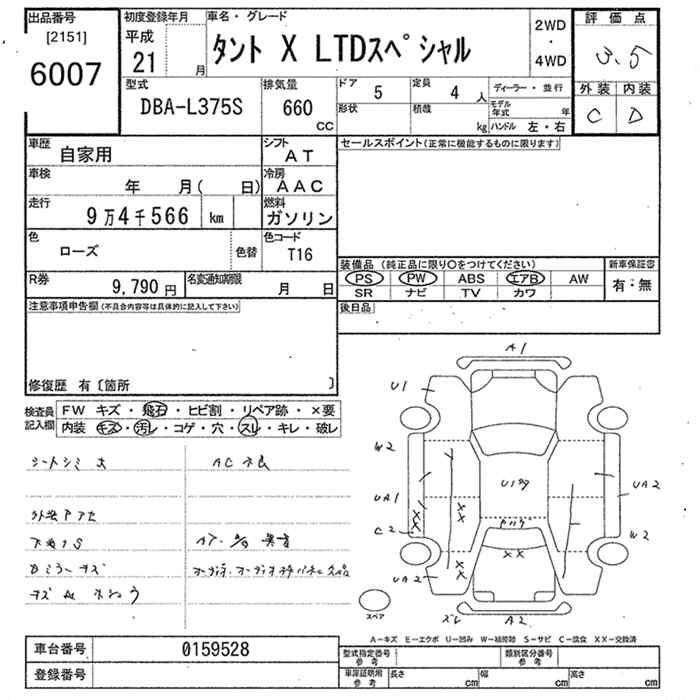 出品番号
[2151]
6007
初度登録年月
平成
21 月
車名・グレード
タント X LTDスペシャル
2WD
・
4WD
評価点
3.5
外装 内装
C D
型式
DBA-L375S
排気量
660
cc
ドア 5
定員 4 人
ディーラー・並行
形状
積載 kg
モデル年式 年
ハンドル 左・右
車歴
自家用
シフト
AT
セールスポイント(正常に機能するものに限ります)
車検
年 月( 日)
冷房
AAC
走行
9万4千566 km
燃料
ガソリン
色
ローズ
色替
色コード
T16
装備品 (純正品に限り○をつけてください)
新車保証書
PS PW ABS エアB AW
有・無
SR ナビ TV カワ
R券
9,790 円
名変通知期限
月 日
後日品
注意事項申告欄(不具合内容等は具体的に記入して下さい)
修復歴 有〔箇所 〕
検査員
記入欄
FW キズ・飛石・ヒビ割・リペア跡・×要
内装 キズ・汚レ・コゲ・穴・スレ・キレ・破レ
シートシミ大
AC不良
下廻りS
A1
U1
W2
UA1
C2
UA2
U1タタ
XX
XX
XX
XX
XX
UA2
W2
スペア
ズレ
A2
A-キズ E-エクボ U-凹み W-補修跡 S-サビ C-腐食 XX-交換済
車台番号
0159528
登録番号
型式指定番号
参考
類別区分番号
参考
車庫証明用
参考
長さ cm
幅 cm
高さ cm